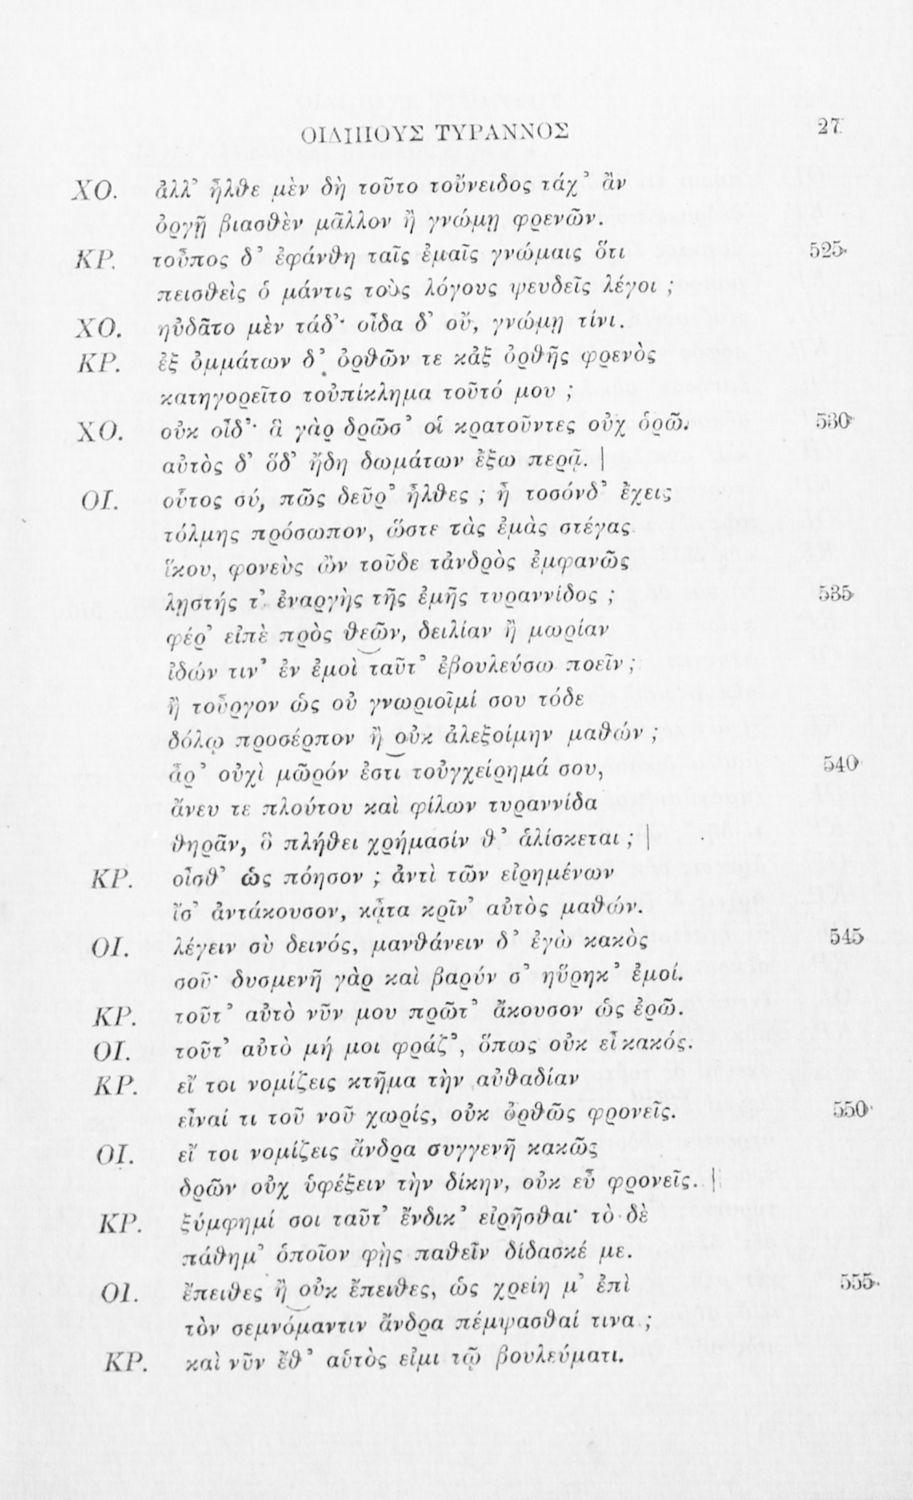 ΟΙΔΙΠΟΥΣ ΤΥΡΑΝΝΟΣ 27
ΧΟ. ἀλλ’ ἦλθε μὲν δὴ τοῦτο τοὔνειδος τάχ’ ἂν
ὀργῇ βιασθὲν μᾶλλον ἢ γνώμῃ φρενῶν.
ΚΡ. τοὖπος δ’ ἐφάνθη ταῖς ἐμαῖς γνώμαις ὅτι 525
πεισθεὶς ὁ μάντις τοὺς λόγους ψευδεῖς λέγοι ;
ΧΟ. ηὐδᾶτο μὲν τάδ’· οἶδα δ’ οὔ, γνώμῃ τίνι.
ΚΡ. ἐξ ὀμμάτων δ’ ὀρθῶν τε κἀξ ὀρθῆς φρενὸς
κατηγορεῖτο τοὐπίκλημα τοῦτό μου ;
ΧΟ. οὐκ οἶδ’· ἃ γὰρ δρῶσ’ οἱ κρατοῦντες οὐχ ὁρῶ. 530
αὐτὸς δ’ ὅδ’ ἤδη δωμάτων ἔξω περᾷ. |
ΟΙ. οὗτος σύ, πῶς δεῦρ’ ἦλθες ; ἦ τοσόνδ’ ἔχεις
τόλμης πρόσωπον, ὥστε τὰς ἐμὰς στέγας
ἵκου, φονεὺς ὢν τοῦδε τἀνδρὸς ἐμφανῶς
λῃστής τ’ ἐναργὴς τῆς ἐμῆς τυραννίδος ; 535
φέρ’ εἰπὲ πρὸς θεῶν, δειλίαν ἢ μωρίαν
ἰδών τιν’ ἐν ἐμοὶ ταῦτ’ ἐβουλεύσω ποεῖν ;
ἢ τοὖργον ὡς οὐ γνωριοῖμί σου τόδε
δόλῳ προσέρπον ἢ οὐκ ἀλεξοίμην μαθών ;
ἆρ’ οὐχὶ μῶρόν ἐστι τοὐγχείρημά σου, 540
ἄνευ τε πλούτου καὶ φίλων τυραννίδα
θηρᾶν, ὃ πλήθει χρήμασίν θ’ ἁλίσκεται ; |
ΚΡ. οἶσθ’ ὡς πόησον ; ἀντὶ τῶν εἰρημένων
ἴσ’ ἀντάκουσον, κᾆτα κρῖν’ αὐτὸς μαθών.
ΟΙ. λέγειν σὺ δεινός, μανθάνειν δ’ ἐγὼ κακὸς 545
σοῦ· δυσμενῆ γὰρ καὶ βαρύν σ’ ηὕρηκ’ ἐμοί.
ΚΡ. τοῦτ’ αὐτὸ νῦν μου πρῶτ’ ἄκουσον ὡς ἐρῶ.
ΟΙ. τοῦτ’ αὐτὸ μή μοι φράζ’, ὅπως οὐκ εἶ κακός.
ΚΡ. εἴ τοι νομίζεις κτῆμα τὴν αὐθαδίαν
εἶναί τι τοῦ νοῦ χωρίς, οὐκ ὀρθῶς φρονεῖς. 550
ΟΙ. εἴ τοι νομίζεις ἄνδρα συγγενῆ κακῶς
δρῶν οὐχ ὑφέξειν τὴν δίκην, οὐκ εὖ φρονεῖς. |
ΚΡ. ξύμφημί σοι ταῦτ’ ἔνδικ’ εἰρῆσθαι· τὸ δὲ
πάθημ’ ὁποῖον φὴς παθεῖν δίδασκέ με.
ΟΙ. ἔπειθες ἢ οὐκ ἔπειθες, ὡς χρείη μ’ ἐπὶ 555
τὸν σεμνόμαντιν ἄνδρα πέμψασθαί τινα ;
ΚΡ. καὶ νῦν ἔθ’ αὑτὸς εἰμι τῷ βουλεύματι.